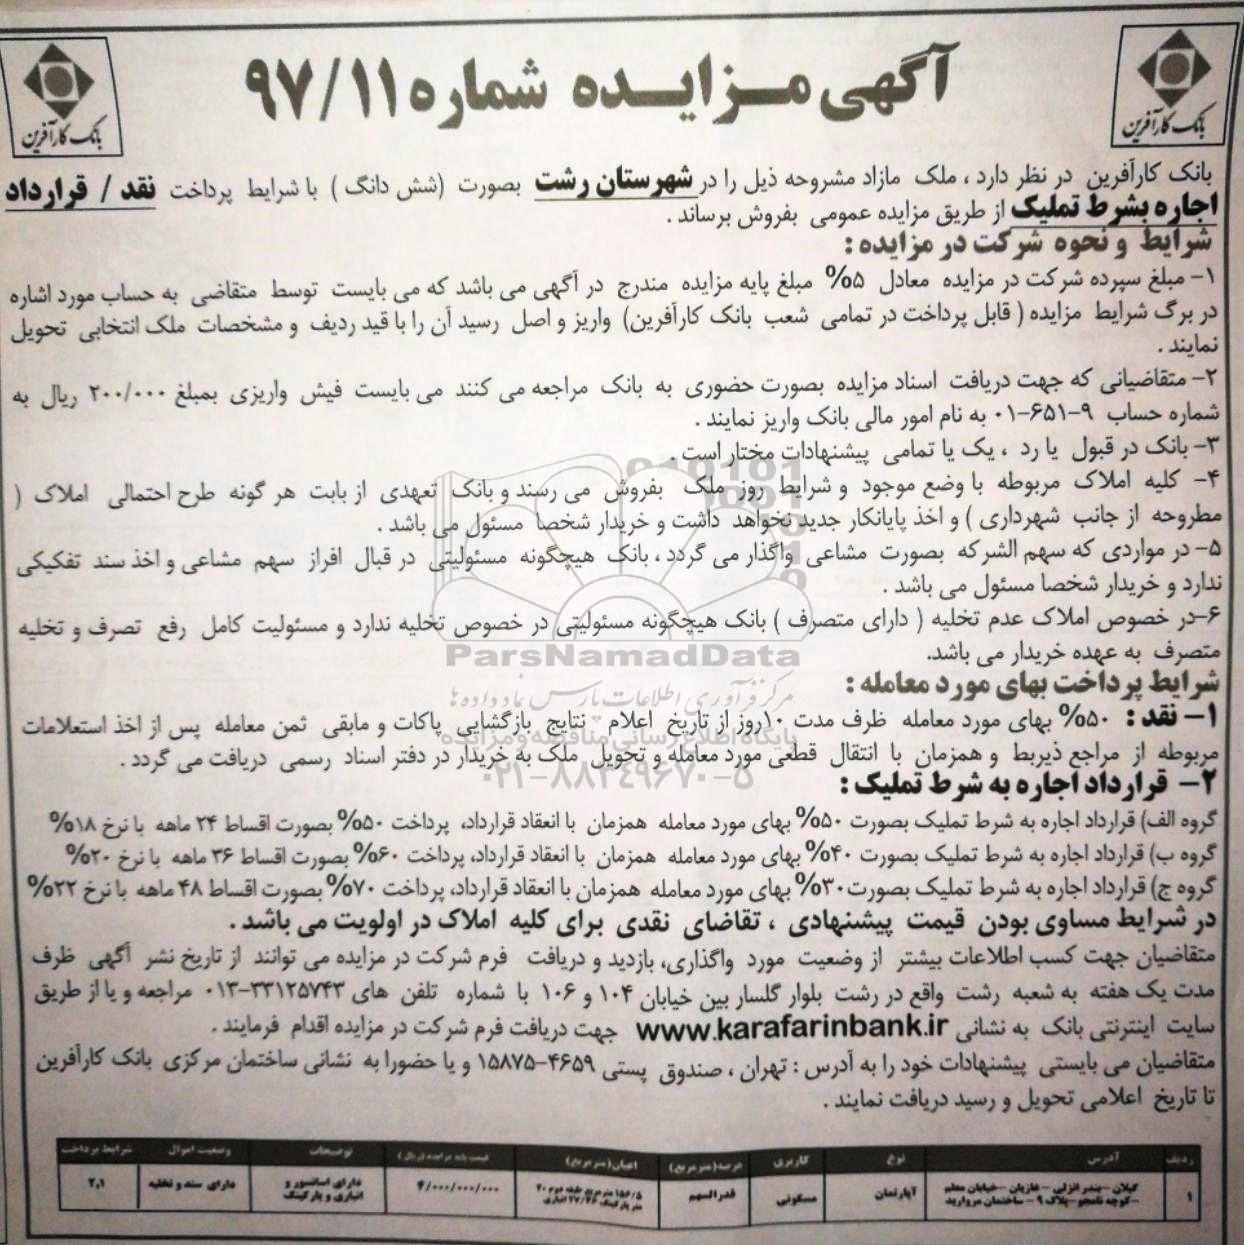 آگهی مزایده شماره ۹۷/۱۱
بانک کارآفرین
بانک کارآفرین
بانک کارآفرین در نظر دارد ، ملک مازاد مشروحه ذیل را در شهرستان رشت بصورت (شش دانگ ) با شرایط پرداخت نقد / قرارداد
اجاره بشرط تملیک از طریق مزایده عمومی بفروش برساند .
شرایط و نحوه شرکت در مزایده :
۱- مبلغ سپرده شرکت در مزایده معادل ۵% مبلغ پایه مزایده مندرج در آگهی می باشد که می بایست توسط متقاضی به حساب مورد اشاره
در برگ شرایط مزایده ( قابل پرداخت در تمامی شعب بانک کارآفرین) واریز و اصل رسید آن را با قید ردیف و مشخصات ملک انتخابی تحویل
نمایند .
۲- متقاضیانی که جهت دریافت اسناد مزایده بصورت حضوری به بانک مراجعه می کنند می بایست فیش واریزی بمبلغ ۲۰۰/۰۰۰ ریال به
شماره حساب ۹-۶۵۱-۰۱ به نام امور مالی بانک واریز نمایند .
۳- بانک در قبول یا رد ، یک یا تمامی پیشنهادات مختار است .
۴- کلیه املاک مربوطه با وضع موجود و شرایط روز ملک بفروش می رسند و بانک تعهدی از بابت هر گونه طرح احتمالی املاک (
مطروحه از جانب شهرداری ) و اخذ پایانکار جدید نخواهد داشت و خریدار شخصا مسئول می باشد .
۵- در مواردی که سهم الشرکه بصورت مشاعی واگذار می گردد ، بانک هیچگونه مسئولیتی در قبال افراز سهم مشاعی و اخذ سند تفکیکی
ندارد و خریدار شخصا مسئول می باشد .
۶-در خصوص املاک عدم تخلیه ( دارای متصرف ) بانک هیچگونه مسئولیتی در خصوص تخلیه ندارد و مسئولیت کامل رفع تصرف و تخلیه
متصرف به عهده خریدار می باشد.
ParsNamadData
مرکز فرآوری اطلاعات پارس نماد داده ها
شرایط پرداخت بهای مورد معامله :
۱- نقد : ۵۰% بهای مورد معامله ظرف مدت ۱۰روز از تاریخ اعلام نتایج بازگشایی پاکات و مابقی ثمن معامله پس از اخذ استعلامات
پایگاه اطلاع رسانی مناقصه و مزایده
مربوطه از مراجع ذیربط و همزمان با انتقال قطعی مورد معامله و تحویل ملک به خریدار در دفتر اسناد رسمی دریافت می گردد .
۰۲۱-۸۸۳۴۹۶۷۰-۵
۲- قرارداد اجاره به شرط تملیک :
گروه الف) قرارداد اجاره به شرط تملیک بصورت ۵۰% بهای مورد معامله همزمان با انعقاد قرارداد، پرداخت ۵۰% بصورت اقساط ۲۴ ماهه با نرخ ۱۸%
گروه ب) قرارداد اجاره به شرط تملیک بصورت ۴۰% بهای مورد معامله همزمان با انعقاد قرارداد، پرداخت ۶۰% بصورت اقساط ۳۶ ماهه با نرخ ۲۰%
گروه ج) قرارداد اجاره به شرط تملیک بصورت۳۰% بهای مورد معامله همزمان با انعقاد قرارداد، پرداخت ۷۰% بصورت اقساط ۴۸ ماهه با نرخ ۲۲%
در شرایط مساوی بودن قیمت پیشنهادی ، تقاضای نقدی برای کلیه املاک در اولویت می باشد .
متقاضیان جهت کسب اطلاعات بیشتر از وضعیت مورد واگذاری، بازدید و دریافت فرم شرکت در مزایده می توانند از تاریخ نشر آگهی ظرف
مدت یک هفته به شعبه رشت واقع در رشت بلوار گلسار بین خیابان ۱۰۴ و ۱۰۶ با شماره تلفن های ۳۳۱۲۵۷۴۳-۰۱۳ مراجعه و یا از طریق
سایت اینترنتی بانک به نشانی www.karafarinbank.ir جهت دریافت فرم شرکت در مزایده اقدام فرمایند .
متقاضیان می بایستی پیشنهادات خود را به آدرس : تهران ، صندوق پستی ۴۶۵۹-۱۵۸۷۵ و یا حضورا به نشانی ساختمان مرکزی بانک کارآفرین
تا تاریخ اعلامی تحویل و رسید دریافت نمایند .
ردیف آدرس نوع کاربری عرصه(مترمربع) اعیان(مترمربع) قیمت پایه مزایده (ریال) توضیحات وضعیت اموال شرایط پرداخت
۱ گیلان -بندر انزلی - غازیان -خیابان معلم آپارتمان مسکونی قدرالسهم ۱۵۶/۵ مترمربع طبقه دوم ۲۰ ۴/۰۰۰/۰۰۰/۰۰۰ دارای آسانسور و دارای سند و تخلیه ۲,۱
-کوچه نامجو-پلاک ۹ - ساختمان مروارید متر پارکینگ ۲۷/۲۶ انباری انباری و پارکینگ